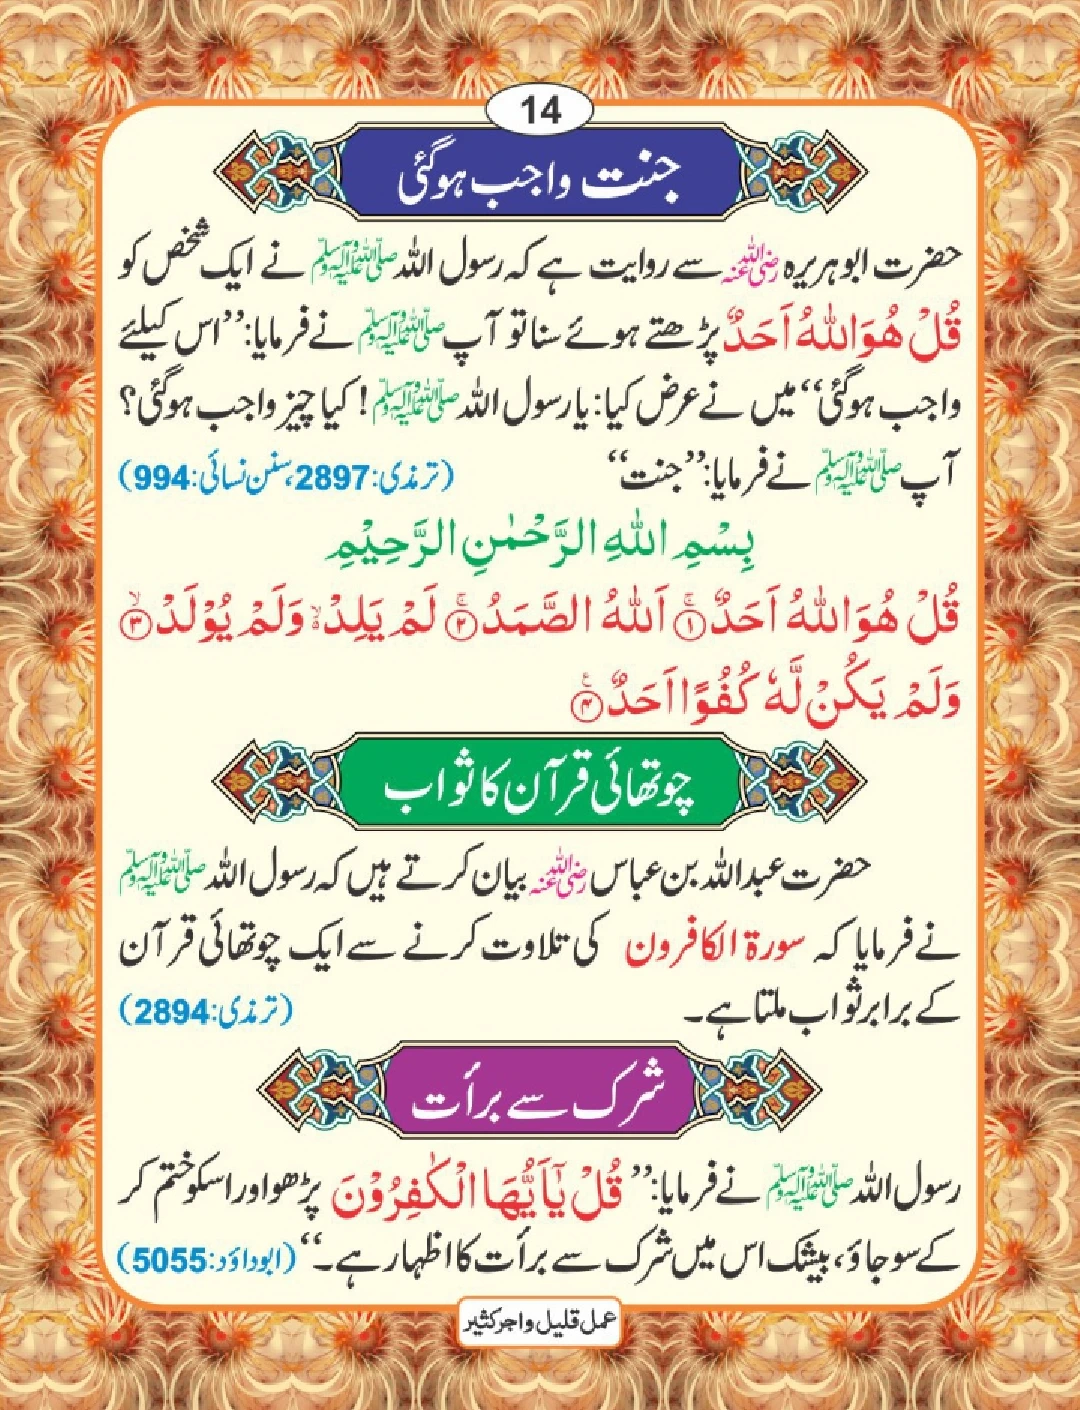 14
جنت واجب ہوگئی
حضرت ابوہریرہ رضی اللہ عنہ سے روایت ہے کہ رسول اللہ صلی اللہ علیہ وآلہ وسلم نے ایک شخص کو
قُلْ هُوَ اللّٰهُ اَحَدٌ پڑھتے ہوئے سنا تو آپ صلی اللہ علیہ وآلہ وسلم نے فرمایا: ”اس کیلئے
واجب ہوگئی“ میں نے عرض کیا: یا رسول اللہ صلی اللہ علیہ وآلہ وسلم! کیا چیز واجب ہوگئی؟
آپ صلی اللہ علیہ وآلہ وسلم نے فرمایا: ”جنت“ (ترمذی: 2897، سنن نسائی: 994)
بِسْمِ اللّٰهِ الرَّحْمٰنِ الرَّحِیْمِ
قُلْ هُوَ اللّٰهُ اَحَدٌۚ۝۱ اَللّٰهُ الصَّمَدُۚ۝۲ لَمْ یَلِدْ ۙ۬ وَلَمْ یُوْلَدْۙ۝۳
وَلَمْ یَكُنْ لَّهٗ كُفُوًا اَحَدٌ۠۝۴
چوتھائی قرآن کا ثواب
حضرت عبداللہ بن عباس رضی اللہ عنہ بیان کرتے ہیں کہ رسول اللہ صلی اللہ علیہ وآلہ وسلم
نے فرمایا کہ سورۃ الکافرون کی تلاوت کرنے سے ایک چوتھائی قرآن
کے برابر ثواب ملتا ہے۔ (ترمذی: 2894)
شرک سے برأت
رسول اللہ صلی اللہ علیہ وآلہ وسلم نے فرمایا: ”قُلْ یٰۤاَیُّهَا الْكٰفِرُوْنَ پڑھو اور اسکو ختم کر
کے سو جاؤ، بیشک اس میں شرک سے برأت کا اظہار ہے۔“ (ابوداؤد: 5055)
عمل قلیل و اجر کثیر